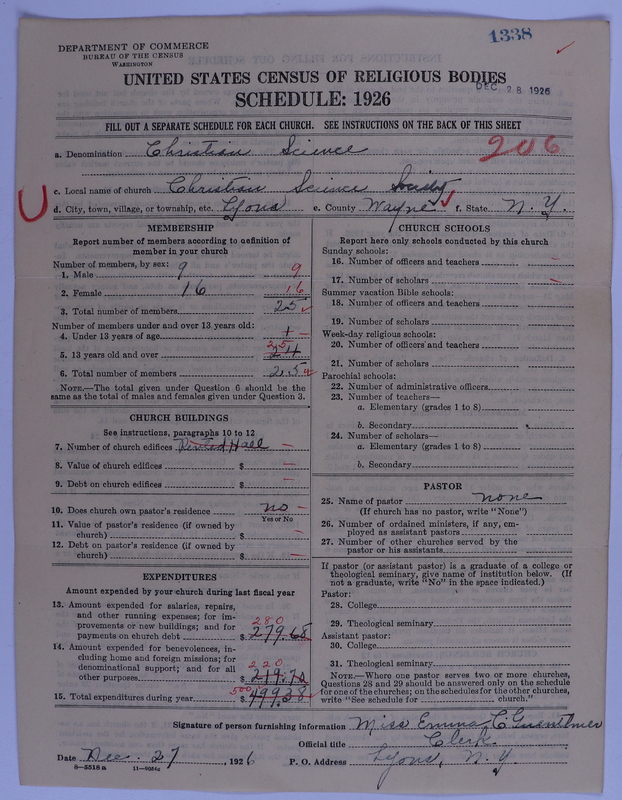 1338
DEPARTMENT OF COMMERCE
BUREAU OF THE CENSUS
WASHINGTON
UNITED STATES CENSUS OF RELIGIOUS BODIES
DEC 28 1926
SCHEDULE: 1926
FILL OUT A SEPARATE SCHEDULE FOR EACH CHURCH. SEE INSTRUCTIONS ON THE BACK OF THIS SHEET
a. Denomination Christian Science 206
c. Local name of church Christian Science Society
d. City, town, village, or township, etc. Lyons e. County Wayne f. State N.Y.
MEMBERSHIP
Report number of members according to definition of
member in your church
Number of members, by sex:
1. Male 9 9
2. Female 16 16
3. Total number of members 25
Number of members under and over 13 years old:
4. Under 13 years of age 1 –
5. 13 years old and over 25 24
6. Total number of members 25
NOTE.—The total given under Question 6 should be the
same as the total of males and females given under Question 3.
CHURCH BUILDINGS
See instructions, paragraphs 10 to 12
7. Number of church edifices Rented Hall –
8. Value of church edifices $ –
9. Debt on church edifices $ –
10. Does church own pastor's residence no –
Yes or No
11. Value of pastor's residence (if owned by
church) $ –
12. Debt on pastor's residence (if owned by
church) $ –
EXPENDITURES
Amount expended by your church during last fiscal year
13. Amount expended for salaries, repairs,
and other running expenses; for im-
provements or new buildings; and for 280
payments on church debt $ 279.68
14. Amount expended for benevolences, in-
cluding home and foreign missions; for
denominational support; and for all 220
other purposes $ 219.70
15. Total expenditures during year 500 $ 499.38
CHURCH SCHOOLS
Report here only schools conducted by this church
Sunday schools:
16. Number of officers and teachers –
17. Number of scholars –
Summer vacation Bible schools:
18. Number of officers and teachers
19. Number of scholars
Week-day religious schools:
20. Number of officers and teachers
21. Number of scholars
Parochial schools:
22. Number of administrative officers
23. Number of teachers—
a. Elementary (grades 1 to 8)
b. Secondary
24. Number of scholars—
a. Elementary (grades 1 to 8)
b. Secondary
PASTOR
25. Name of pastor none
(If church has no pastor, write "None")
26. Number of ordained ministers, if any, em-
ployed as assistant pastors
27. Number of other churches served by the
pastor or his assistants
If pastor (or assistant pastor) is a graduate of a college or
theological seminary, give name of institution below. (If
not a graduate, write "No" in the space indicated.)
Pastor:
28. College
29. Theological seminary
Assistant pastor:
30. College
31. Theological seminary
NOTE.—Where one pastor serves two or more churches,
Questions 28 and 29 should be answered only on the schedule
for one of the churches; on the schedules for the other churches,
write "See schedule for church."
Signature of person furnishing information Miss Emma C.
Official title Clerk
Date Dec. 27, 1926 P. O. Address Lyons, N.Y.
8—3518a 11—9051c